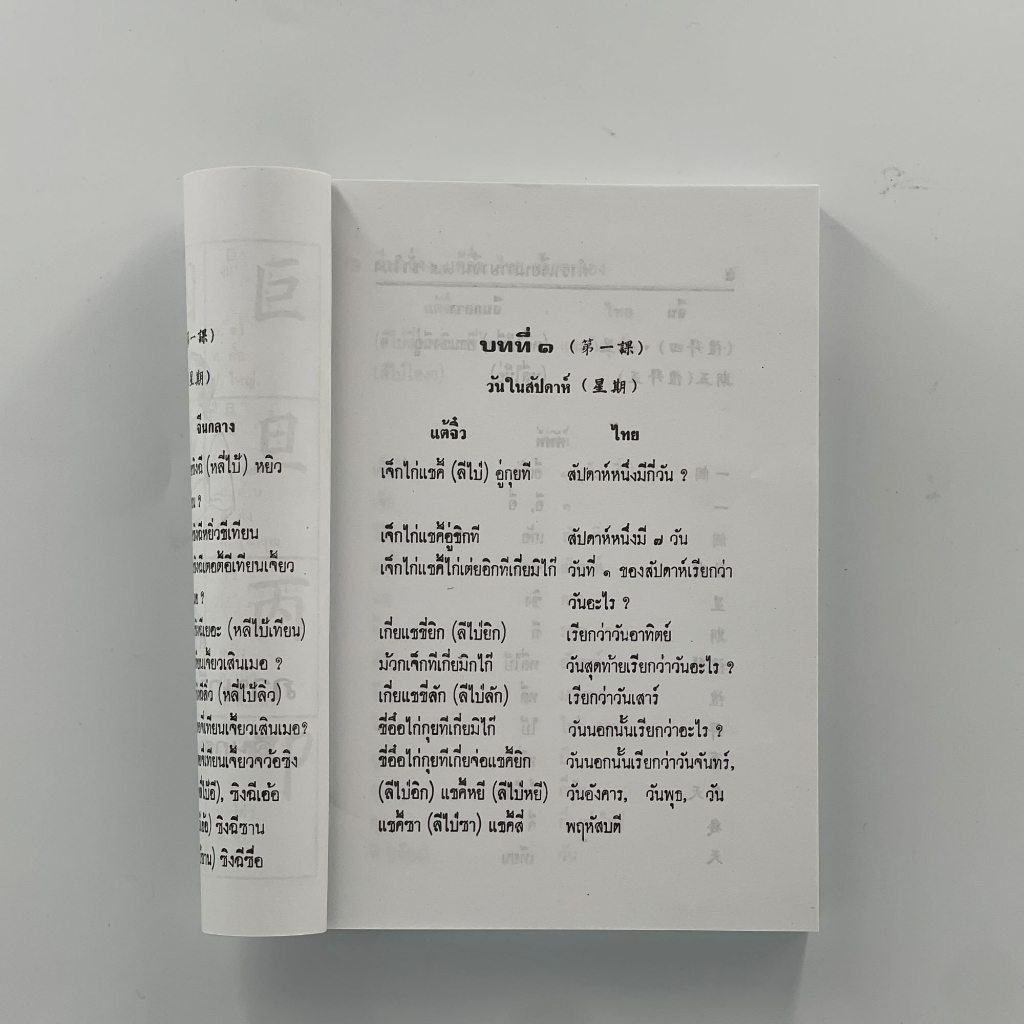 一課)
期)
จีนกลาง
(หลี่ไป้) หยิว
?
เจี้ยว
?
(หลีไป้เทียน)
เจี้ยวเสินเมอ ?
(หลี่ไป้ลิ่ว)
เทียนเจี้ยวเสินเมอ?
เทียนเจี้ยวจว้อซิง
ซิงฉีเอ้อ
ซิงฉีซาน
ซิงฉีซื่อ
บทที่ ๑ (第一課)
วันในสัปดาห์ (星期)
แต้จิ๋ว ไทย
เจ็กไก่แชคี้ (ลีไป่) อู่กุยที สัปดาห์หนึ่งมีกี่วัน ?
เจ็กไก่แชคี้อู่ชิกที สัปดาห์หนึ่งมี ๗ วัน
เจ็กไก่แชคี้ไก่เต่ยอิกทีเกี่ยมิไก๊ วันที่ ๑ ของสัปดาห์เรียกว่า
วันอะไร ?
เกี่ยแชชี่ยิก (ลีไป่ยิก) เรียกว่าวันอาทิตย์
ม้วกเจ็กทีเกี่ยมิกไก๊ วันสุดท้ายเรียกว่าวันอะไร ?
เกี่ยแชชี่ลัก (ลีไป่ลัก) เรียกว่าวันเสาร์
ชี่อื๊อไก่กุยทีเกี่ยมิไก๊ วันนอกนั้นเรียกว่าอะไร ?
ชี่อื๊อไก่กุยทีเกี่ยจ่อแชคี้ยิก วันนอกนั้นเรียกว่าวันจันทร์,
(ลีไป่อิก) แชคี้หยี (ลีไป่หยี) วันอังคาร, วันพุธ, วัน
แชคี้ซา (ลีไป่ซา) แชคี้สี่ พฤหัสบดี